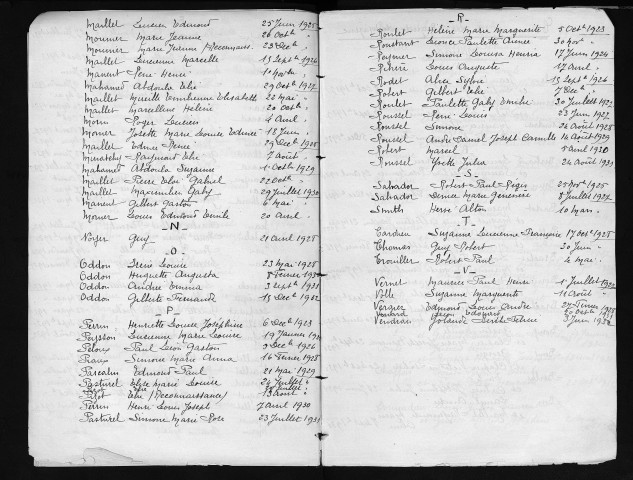 Maillet Lucien Edmond 25 Juin 1925
Mounier Marie Jeanne 26 Octbre "
Mounier Marie Jeanne (Reconnaiss. 23 Dec "
Maillet Lucienne Marcelle 15 Septbre 1926
Manent René Henri "
Mahamed Abdoula Elie 29 Octbre 1927
Maillet Mireille Emilienne Elisabeth 20 Mai "
Maillet Marcelline Hélène 20 Octbre "
Morin Roger Lucien 4 Avril "
Monier Josette Marie Louise Edmée 18 Juin "
Maillet Edmée Renée 29 Dec 1928
Raymond Elie 7 Août "
Mahamed Abdoula Suzanne 1 Octbre 1929
Maillet Pierre Elie Gabriel 22 Octbre "
Maillet Maximilien Gaby 29 Juillet 1930
Manent Gilbert Gaston 6 Mai "
Monier Louis Edmond Emile 20 Avril "
- N -
Noyer Guy 21 Avril 1928
- O -
Oddon Irène Louise 23 Mai 1925
Oddon Huguette Augusta 8 Février
Oddon Andrée Emma 3 Septbre 1931
Oddon Gilberte Fernande 15 Dec 1932
- P -
Perrin Henriette Louise Joséphine 6 Dec 1923
Peysson Lucienne Marie Louise 19 Janvier
Peloux Paul Léon Gaston 9 Dec 1926
Praux Simone Marie Anna 16 Février 1928
Pascalin Edmond Paul 21 Mai 1929
Pasturel Elise Marie Louise 24 Juillet "
Elie (Reconnaissance) 13 Août "
Perrin Henri Louis Joseph 7 Avril 1930
Pasturel Simone Marie Rose 23 Juillet 1931
- R -
Roulet Hélène Marie Marguerite 5 Octbre 1923
Roustant Léonce Paulette Aimée 30 Nov "
Reymier Simone Louisa Henria 17 Juin 1924
Louis Auguste 17 Avril "
Rodet Alice Sylvie 15 Septbre 1926
Robert Gilbert Elie 7 Dec "
Roulet Paulette Gaby Emilie 30 Juillet 192
Roussel René Louis 23 Juin 1927
Roussel Simone 26 Août 1928
Roussel André Camil Joseph Camille 14 Août 1929
Robert Marcel 5 Avril 1930
Roussel Yvette Julia 24 Août 1931
- S -
Salvador Robert Paul Régis 25 Nov 1925
Salvador Denise Marie Geneviève 8 Juillet 1927
Smith Hervé Alton 10 Mars
- T -
Tardieu Suzanne Lucienne Françoise 17 Octbre 1925
Thomas Guy Robert 30 Juin "
Trouiller Robert Paul 4 Mai "
- V -
Vernet Maurice Paul Henri 1 Juillet
Suzanne Marguerite 11 Août "
Verdier Edmond Louis André 27 Février
Léon Edouard 20 Octbre
Vendran Yolande Juin